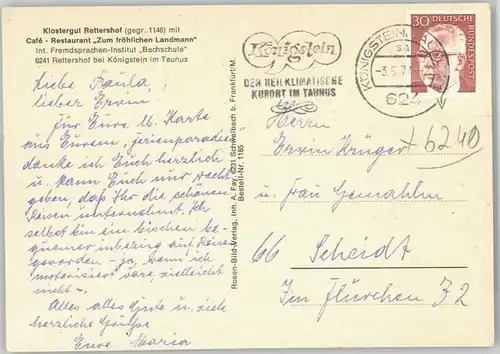 Klostergut Rettershof (gegr. 1146) mit
Café - Restaurant „Zum fröhlichen Landmann"
Int. Fremdsprachen-Institut „Bachschule"
6241 Rettershof bei Königstein im Taunus
Liebe Paula,
lieber Erwin
Für Eure lb. Karte
aus Eurem „Ferienparadies"
danke ich Euch herzlich
u. kann Euch nur recht
geben, daß Ihr die schönen
Reisen unternehmt. Ich
selbst bin ein bischen be-
quemer inbezug auf Reise
geworden - ja, wenn ich
motorisiert wäre, vielleicht
nicht -.
Alles alles Gute u. viele
herzliche Grüsse
Eure Maria
Rosen-Bild-Verlag, Inh. A. Fay, 6231 Schwalbach b. Frankfurt/M.
Bestell-Nr. 1185
Königstein
DER HEILKLIMATISCHE
KURORT IM TAUNUS
KÖNIGSTEIN, TAUNUS
624
30 DEUTSCHE
BUNDESPOST
6240
Herrn
Erwin Krüger
u. Frau Gemahlin
66 Scheidt
Im Flürchen 72